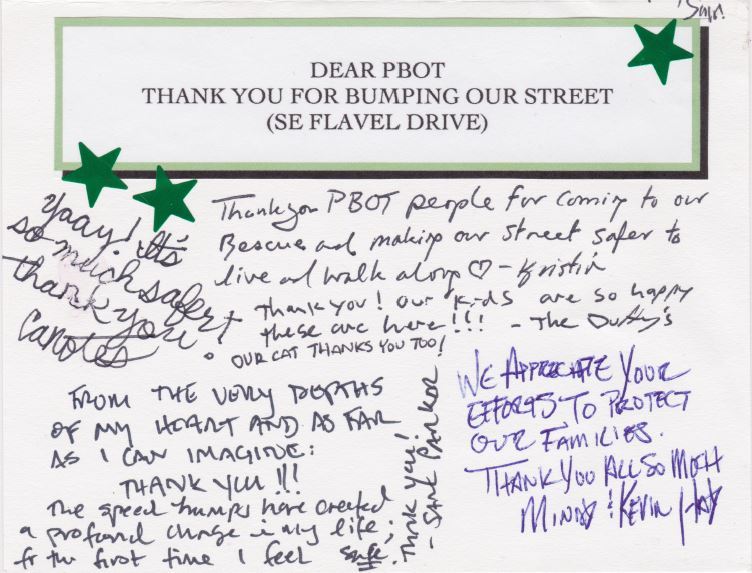 DEAR PBOT
THANK YOU FOR BUMPING OUR STREET
(SE FLAVEL DRIVE)
Yaay! It's
so much safer!
thank you
Thank you PBOT people for coming to our
Rescue and making our street safer to
live and walk along ♡ - Kristin
Thank you! Our kids are so happy
these are here!!! - The Duffy's
OUR CAT THANKS YOU TOO!
FROM THE VERY DEPTHS
OF MY HEART AND AS FAR
AS I CAN IMAGINE:
THANK YOU!!!
The speed humps have created
a profound change in my life;
for the first time I feel safe.
Thank you!
WE APPRECIATE YOUR
EFFORTS TO PROTECT
OUR FAMILIES.
THANK YOU ALL SO MUCH
& KEVIN